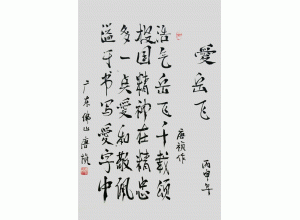 愛岳飞
丙申年
浩气岳飞千载颂
报国精神在精忠
多一点愛和敬佩
溢于书写愛字中
广东佛山唐